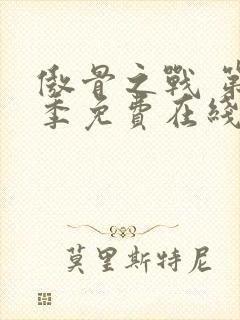 傲骨之戰 第
季免費在綫
莫里斯特尼